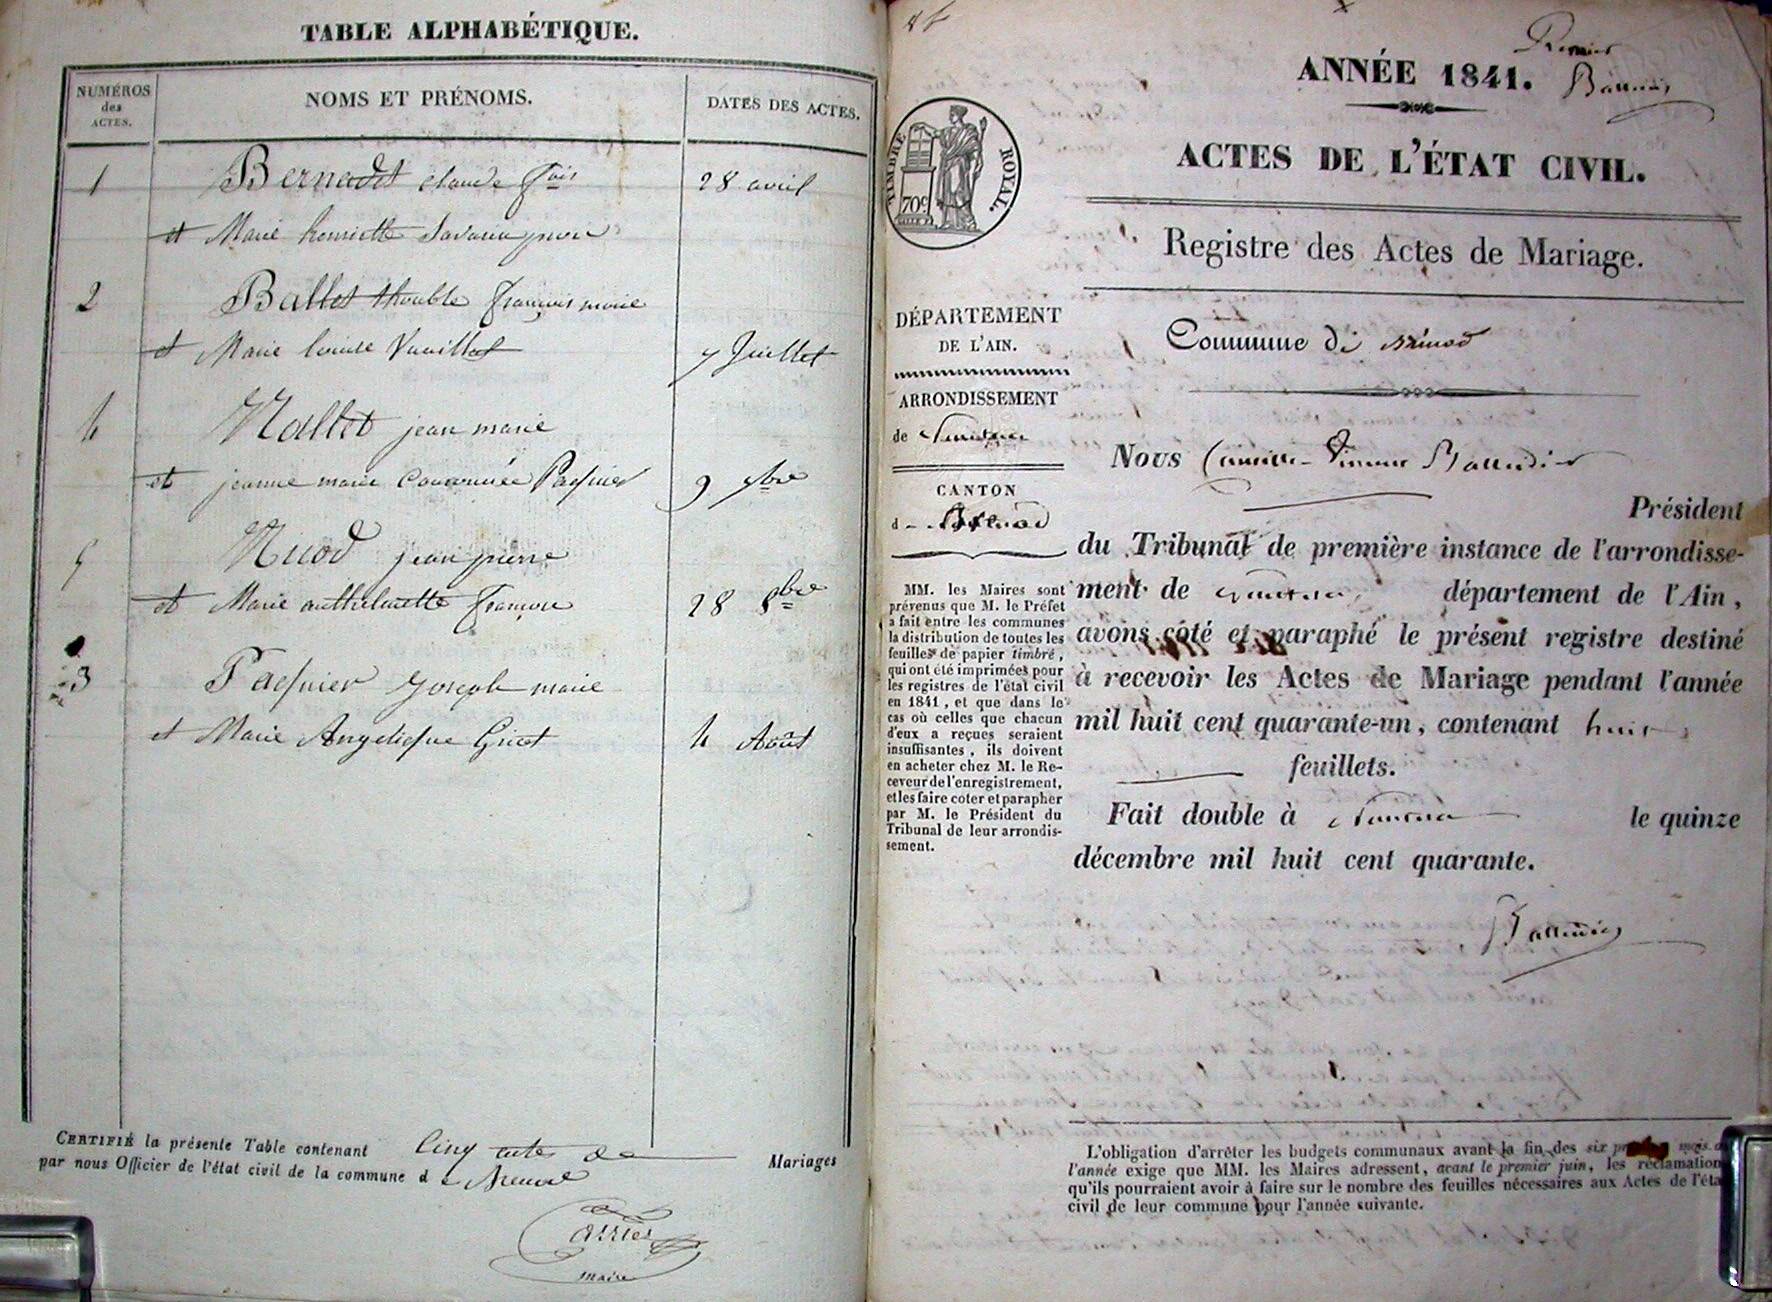 TABLE ALPHABÉTIQUE.
NUMÉROS
des
ACTES.
NOMS ET PRÉNOMS.
DATES DES ACTES.
1 Bernadet claude fois 28 avril
et Marie henriette
2 Ballet thouble françois marie
et Marie louise Vuaillat 7 Juillet
4 Mallet jean marie
et jeanne marie Pasquier 9 7bre
5 Nicod jean pierre
et Marie anthelmette françoise 28 8bre
3 Pasquier joseph marie
et Marie Angelique 4 Août
CERTIFIÉ la présente Table contenant Cinq actes de Mariages
par nous Officier de l'état civil de la commune d e Brenod
maire
Premier
ANNÉE 1841.
TIMBRE ROYAL.
70c
ACTES DE L'ÉTAT CIVIL.
Registre des Actes de Mariage.
Commune de Brénod
DÉPARTEMENT
DE L'AIN.
ARRONDISSEMENT
de Nantua
CANTON
d e Brenod
MM. les Maires sont
prévenus que M. le Préfet
a fait entre les communes
la distribution de toutes les
feuilles de papier timbré,
qui ont été imprimées pour
les registres de l'état civil
en 1841, et que dans le
cas où celles que chacun
d'eux a reçues seraient
insuffisantes, ils doivent
en acheter chez M. le Re-
ceveur de l'enregistrement,
et les faire coter et parapher
par M. le Président du
Tribunal de leur arrondis-
sement.
Nous
Président
du Tribunal de première instance de l'arrondisse-
ment de Nantua, département de l'Ain,
avons coté et paraphé le présent registre destiné
à recevoir les Actes de Mariage pendant l'année
mil huit cent quarante-un, contenant huit
feuillets.
Fait double à Nantua le quinze
décembre mil huit cent quarante.
L'obligation d'arrêter les budgets communaux avant la fin des six mois de
l'année exige que MM. les Maires adressent, avant le premier juin, les réclamation
qu'ils pourraient avoir à faire sur le nombre des feuilles nécessaires aux Actes de l'éta
civil de leur commune pour l'année suivante.